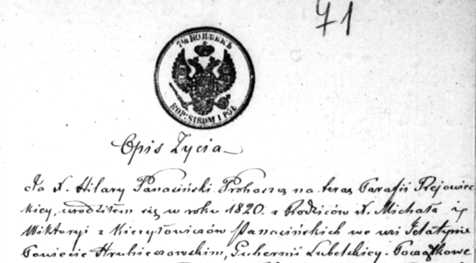 71
7½ КОПѢЕКЪ
КОП. SREBR. I PÓŁ
Opis Życia
Ja X. Hilary Panaciński Proboszcz na teraz Parafii Rejowiec
kiej, urodziłem się w roku 1820. z Rodziców X. Michała i
Wiktoryi z Panacińskich we wsi
Powiecie Hrubieszowskim, Gubernii Lubelskiej. Początkowe